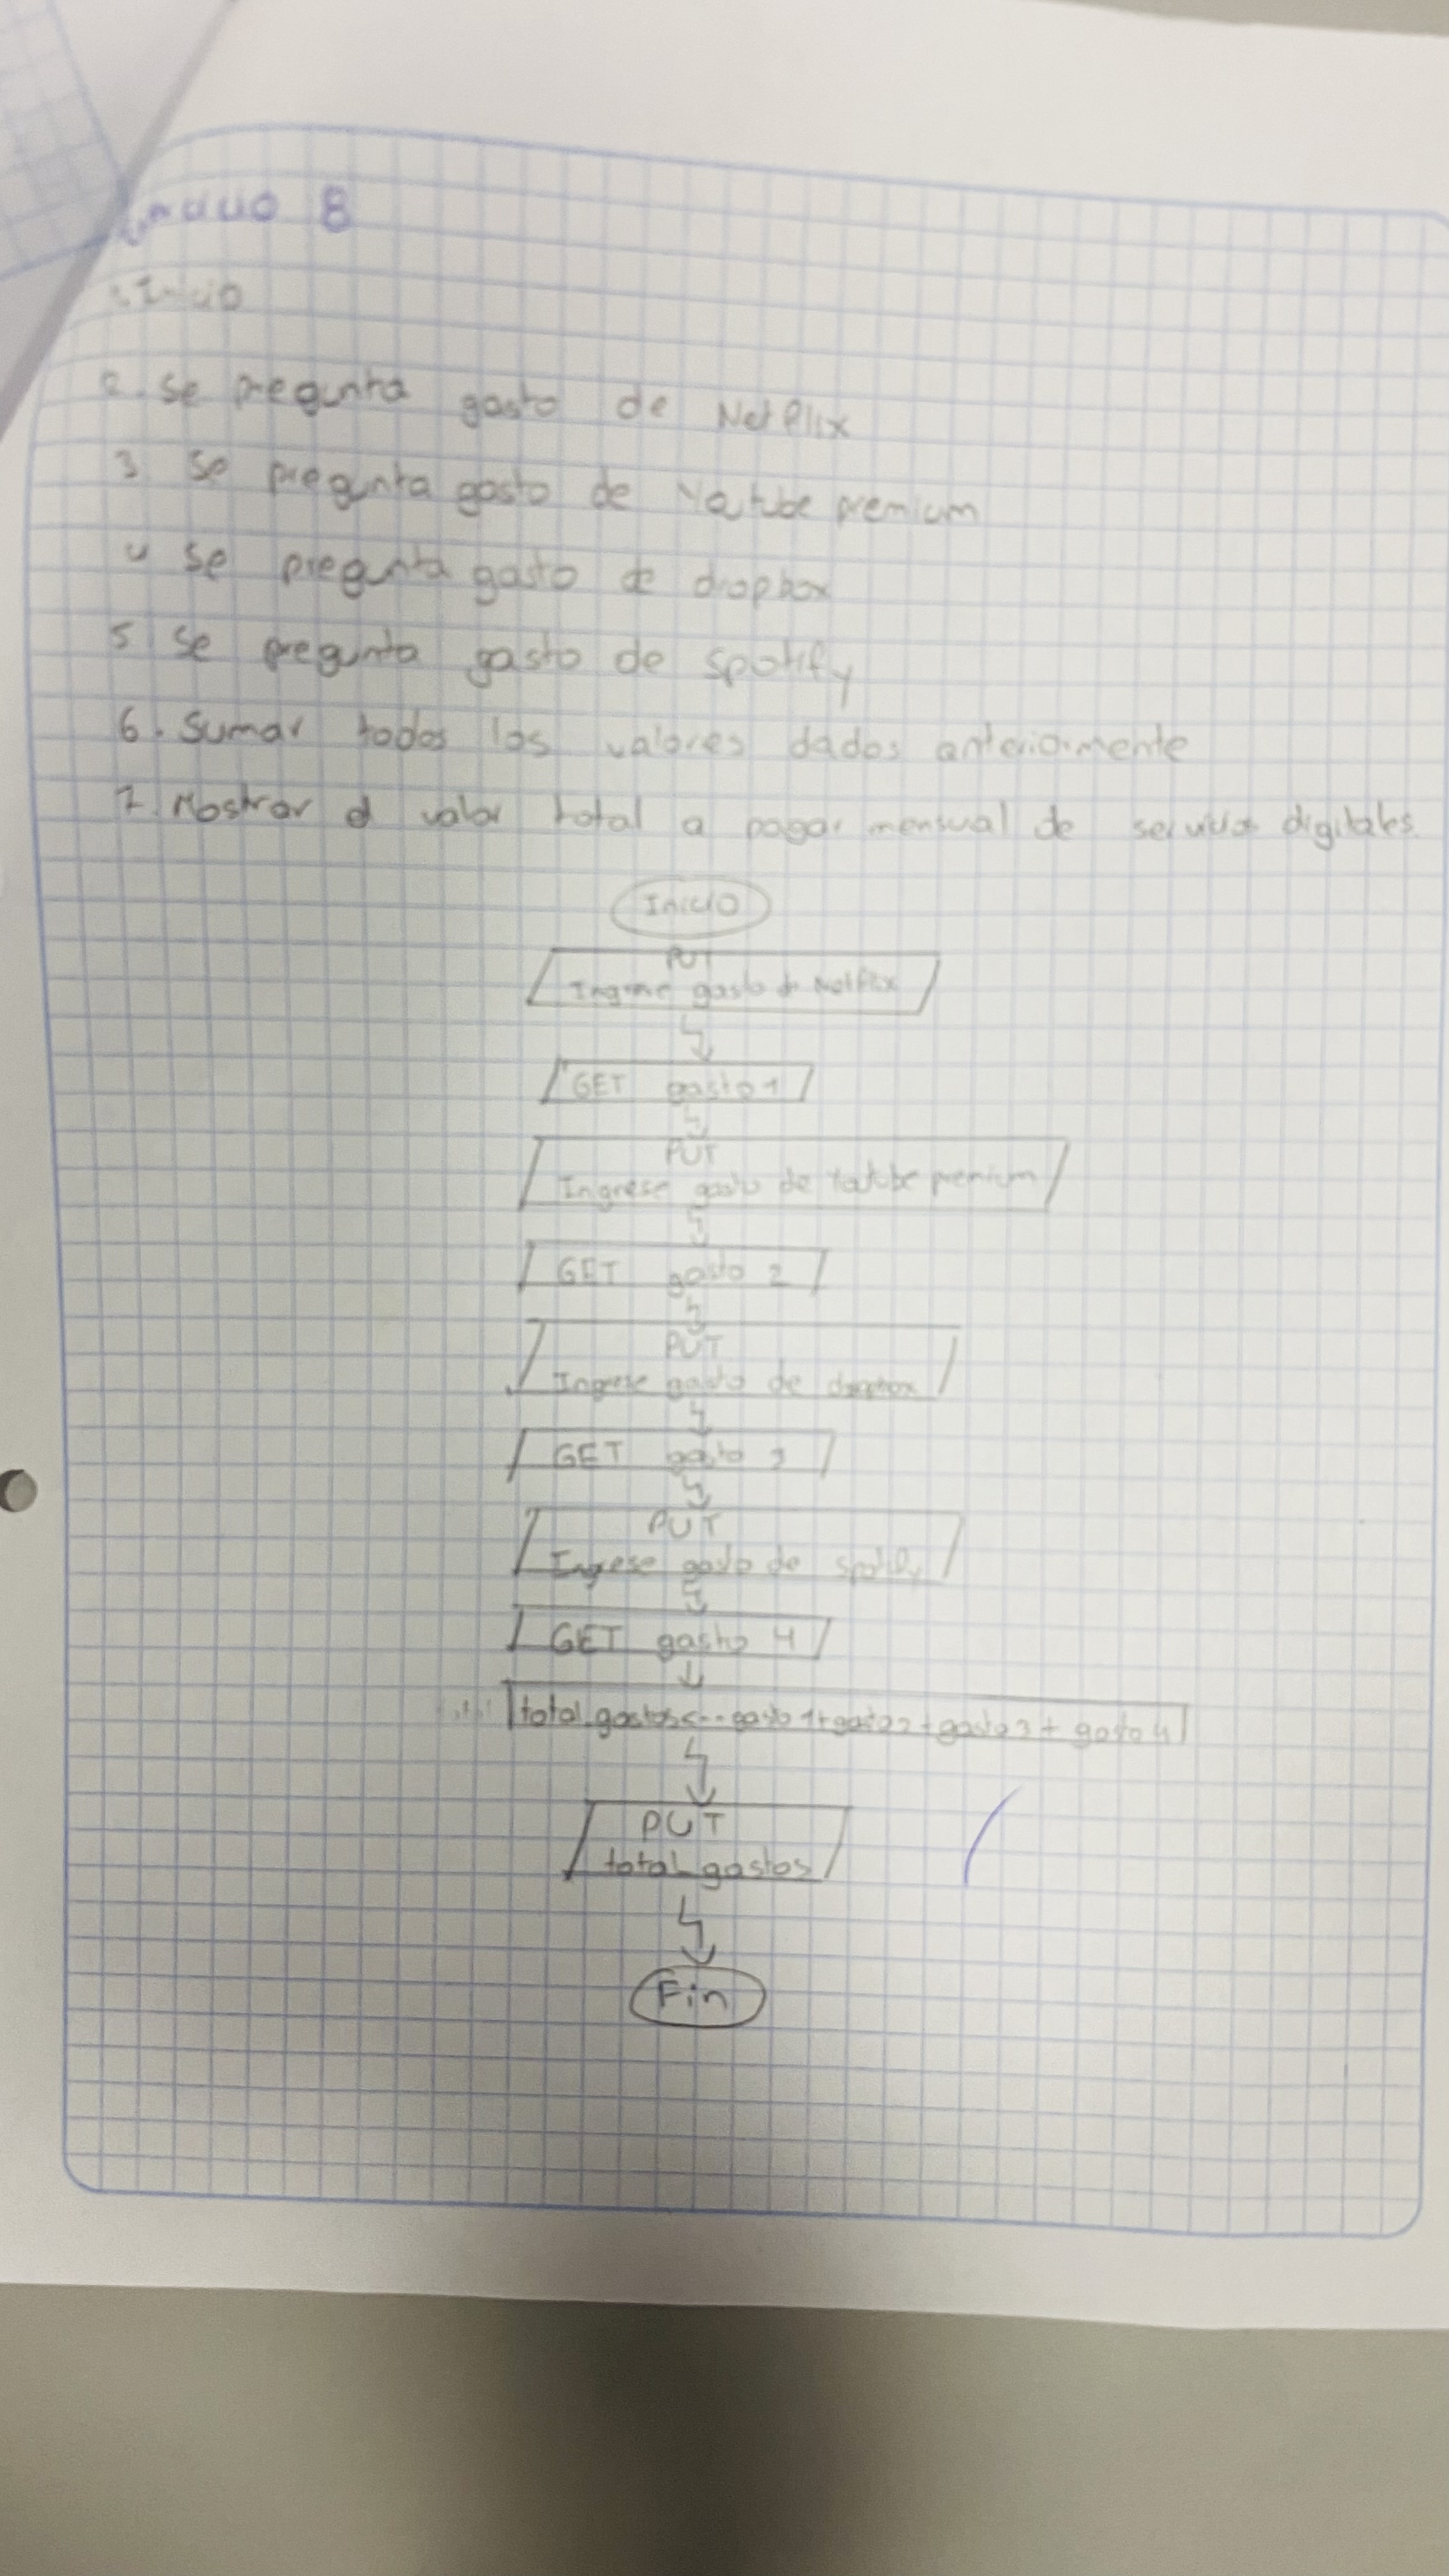 8
Inicio
2. Se pregunta gasto de Netflix
3 Se pregunta gasto de Youtube premium
4 Se pregunta gasto de dropbox
5 Se pregunta gasto de spotify
6. Sumar todos los valores dados anteriormente
7. Mostrar el valor total a pagar mensual de servicios digitales.
Inicio
PUT
Ingrese gasto de Netflix
GET gasto 1
PUT
Ingrese gasto de Youtube premium
GET gasto 2
PUT
Ingrese gasto de dropbox
GET gasto 3
PUT
Ingrese gasto de spotify
GET gasto 4
total_gastos <-- gasto 1 + gasto 2 + gasto 3 + gasto 4
PUT
total_gastos
Fin